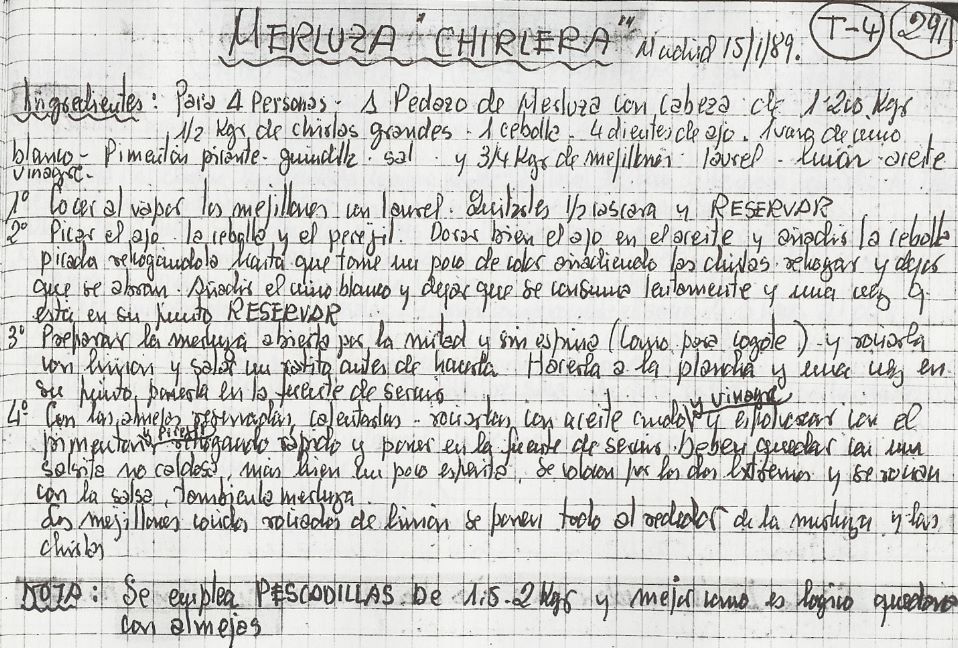 MERLUZA "CHIRLERA" Madrid 15/1/89. T-4 291
Ingredientes: Para 4 Personas - 1 Pedazo de Merluza con cabeza de 1·200 Kgr
1/2 Kgr de chirlas grandes - 1 cebolla - 4 dientes de ajo. 1 vaso de vino
blanco - Pimentón picante - guindilla - sal y 3/4 Kgr de mejillones - laurel - limón - aceite
vinagre.
1º Cocer al vapor los mejillones con laurel. Quitarles 1/2 cascara y RESERVAR
2º Picar el ajo. la cebolla y el perejil. Dorar bien el ajo en el aceite y añadir la cebolla
picada rehogandola hasta que tome un poco de color añadiendo las chirlas. rehogar y dejar
que se abran. Añadir el vino blanco y dejar que se consuma lentamente y una vez q.
está en su punto RESERVAR
3º Preparar la merluza abierta por la mitad y sin espina (como para cogote) - y rociarla
con limon y salar un ratito antes de hacerla. Hacerla a la plancha y una vez en
su punto, ponerla en la fuente de servir
4º Con las almejas reservadas, calentarlas - rociarlas con aceite crudo y vinagre y espolvorear con el
pimentón picante rehogando rapido y poner en la fuente de servir. Deben quedar con una
salsita no caldosa, mas bien un poco espesita. Se colocan por los dos extremos y se rocian
con la salsa, tambien la merluza.
Los mejillones cocidos rociados de limón se ponen todo al rededor de la merluza y las
chirlas
NOTA: Se emplea PESCADILLAS De 1.5-2 Kgr y mejor como es logico quedara
con almejas